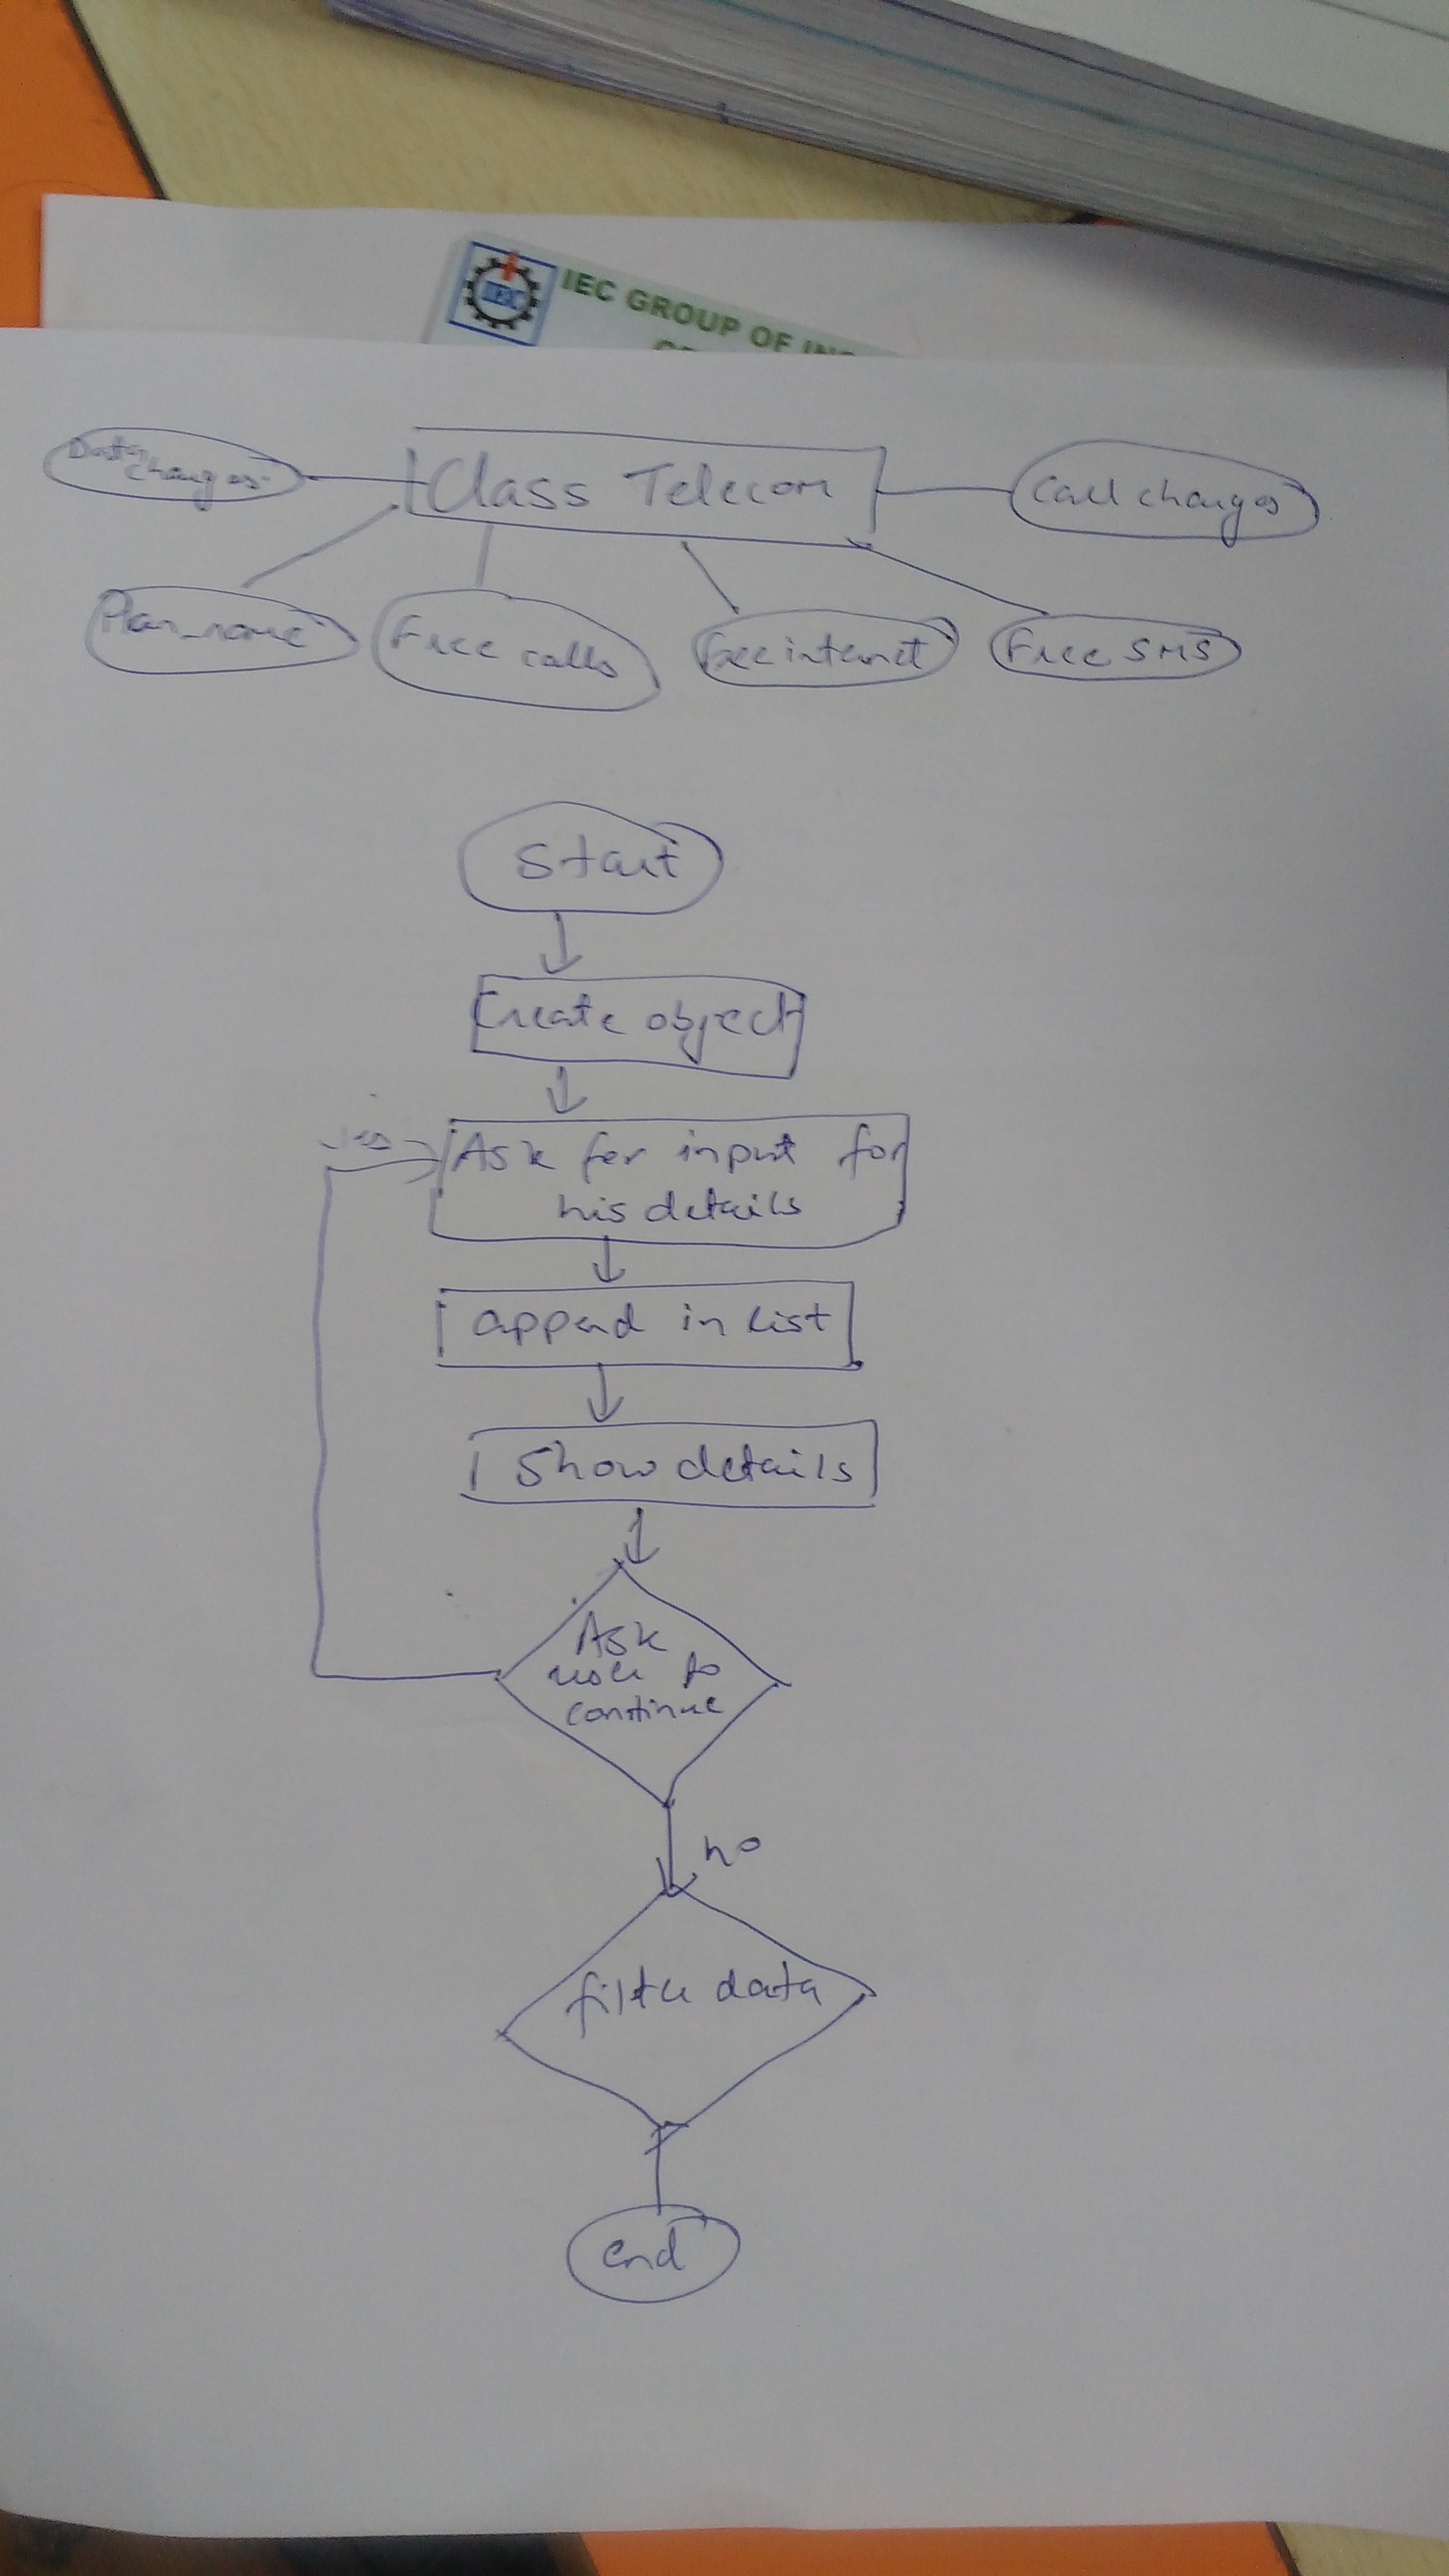 IEC
IEC GROUP OF INS
Class Telecom
Data
charges
Call charges
Plan_name
Free calls
Free internet
Free SMS
Start
Create object
yes
Ask for input for
his details
append in list
Show details
Ask
user to
continue
no
filter data
end